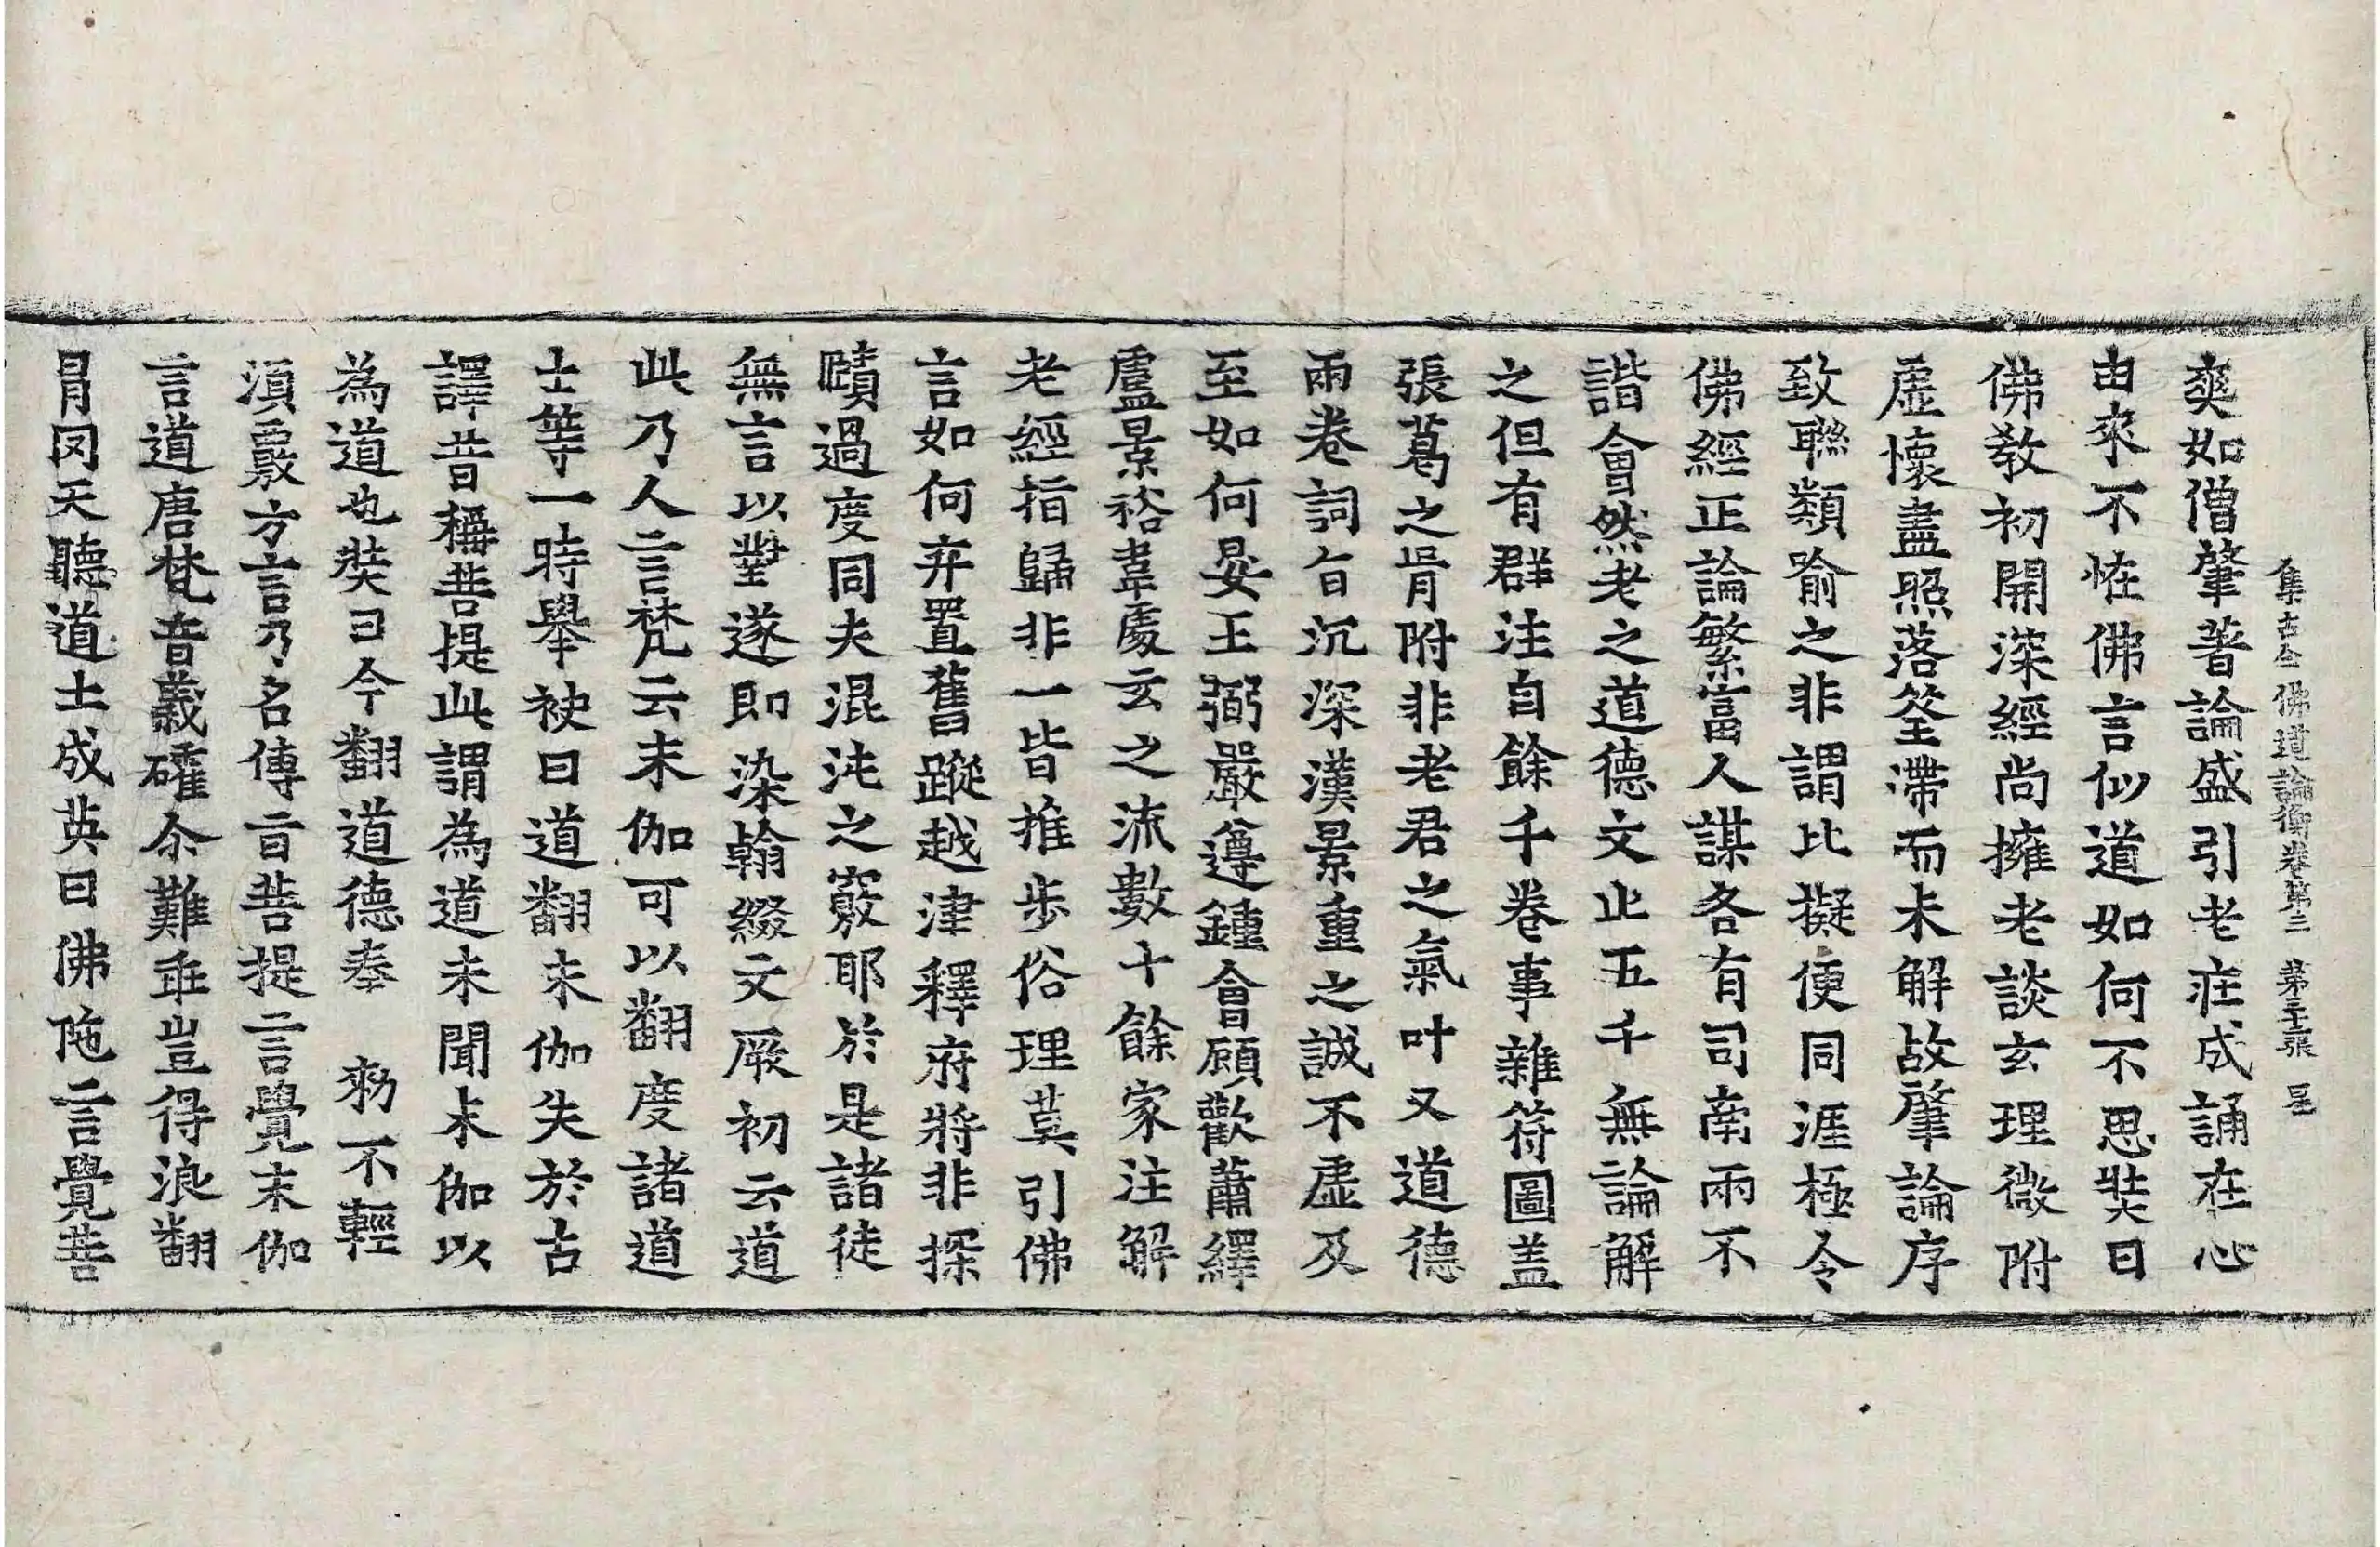 集古今佛道論衡卷第三 第三十張 星
爽如僧肇著論盛引老莊成誦在心
由來不恠佛言似道如何不思奘曰
佛教初開深經尚擁老談玄理微附
虛懷盡照落筌滯而未解故肇論序
致聯類喻之非謂比擬便同涯極今
佛經正論繁富人謀各有司南兩不
諧會然老之道德文止五千無論解
之但有群注自餘千卷事雜符圖盖
張葛之㕯附非老君之氣叶又道德
兩卷詞旨沉深漢景重之誠不虛及
至如何晏王弼嚴遵鍾會顧歡蕭繹
盧景裕韋處玄之流數十餘家注解
老經指歸非一皆推步俗理莫引佛
言如何弃置舊蹤越津釋府將非探
賾過度同夫混沌之竅耶於是諸徒
無言以對遂即染翰綴文厥初云道
此乃人言梵云末伽可以翻度諸道
士等一時舉袂曰道翻末伽失於古
譯昔稱菩提此謂為道未聞末伽以
為道也奘曰今翻道德奉 勑不輕
須覈方言乃名傳旨菩提言覺末伽
言道唐梵音義確尒難乖豈得浪翻
冐罔天聽道士成英曰佛陁言覺菩